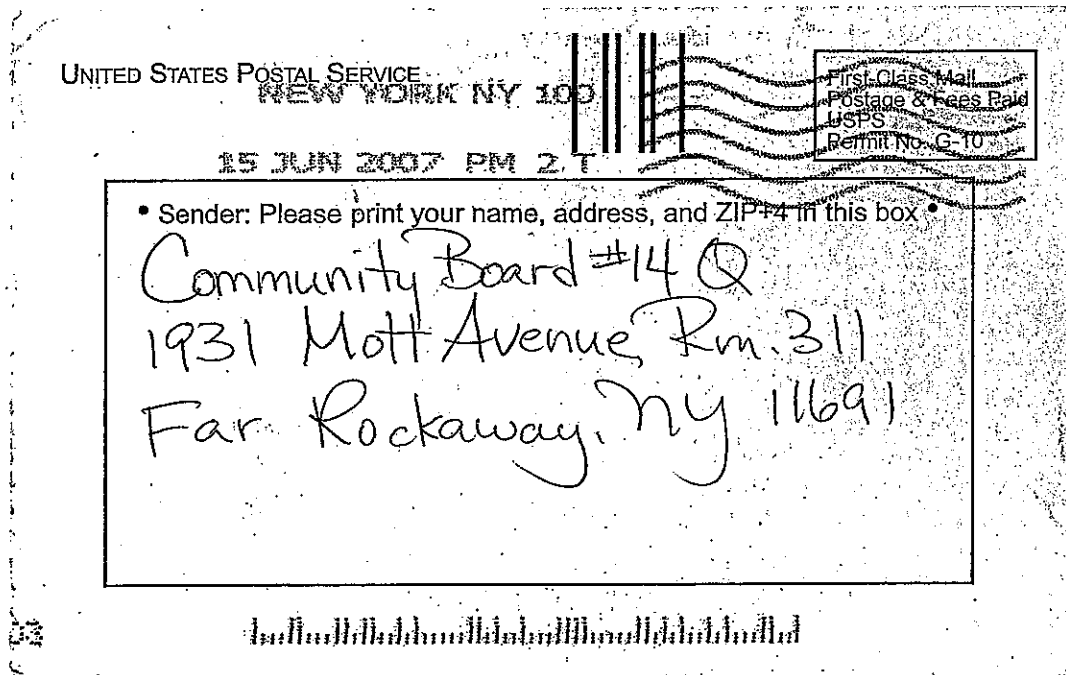 UNITED STATES POSTAL SERVICE
NEW YORK NY 100
15 JUN 2007 PM 2 T
First-Class Mail
Postage & Fees Paid
USPS
Permit No. G-10
• Sender: Please print your name, address, and ZIP+4 in this box •
Community Board #14 Q
1931 Mott Avenue, Rm. 311
Far Rockaway, NY 11691